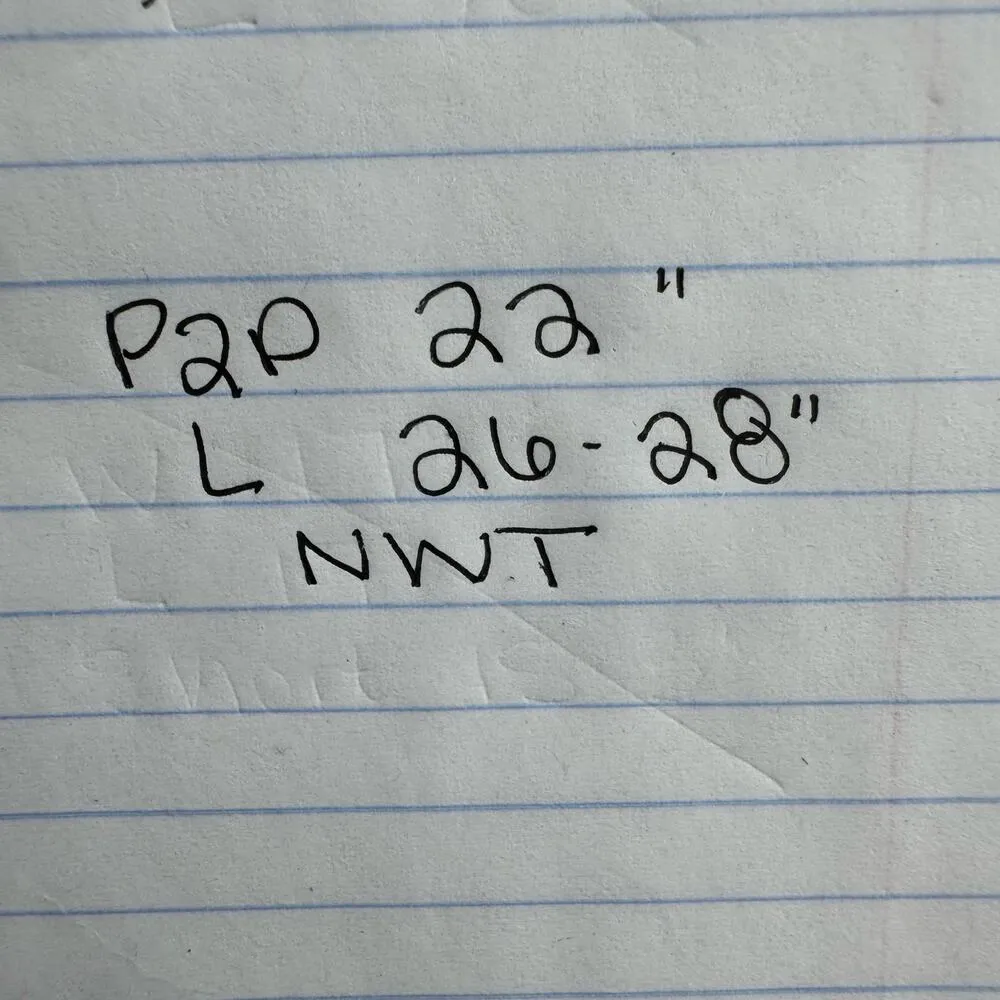 P2P 22"
L 26-28"
NWT